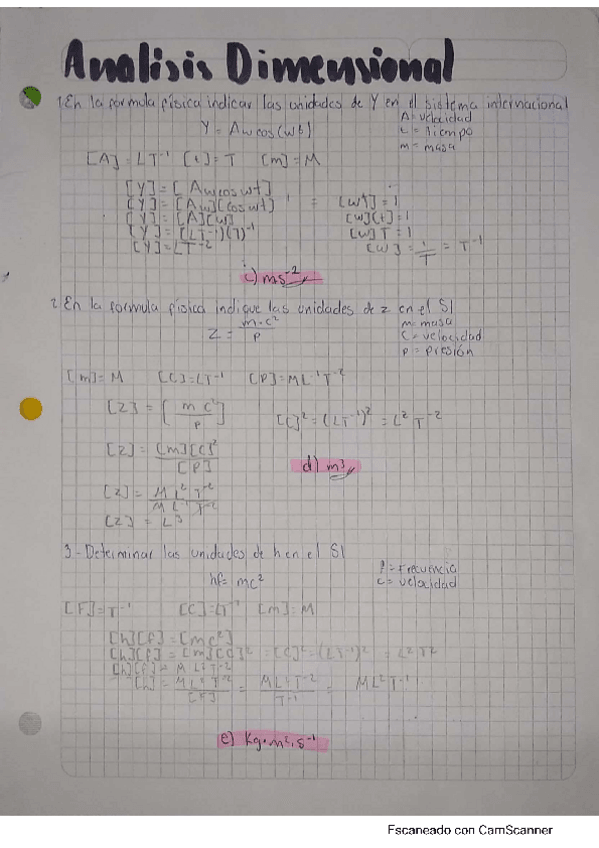 Analisis Dimensional
1. En la formula fisica indicar las unidades de Y en el sistema internacional
Y = Aw cos(wt)
A = velocidad
t = tiempo
m = masa
[A] = LT⁻¹ [t] = T [m] = M
[Y] = [Aw cos wt]
[Y] = [Aw][cos wt]
[Y] = [A][w]
[Y] = (LT⁻¹)(T)⁻¹
[Y] = LT⁻²
= [wt] = 1
[w][t] = 1
[w] T = 1
[w] = 1/T = T⁻¹
c) ms⁻²
2. En la formula fisica indique las unidades de z en el SI
Z = m·c²/p
m = masa
C = velocidad
p = presión
[m] = M [C] = LT⁻¹ [P] = ML⁻¹T⁻²
[Z] = [m c²/p]
[C]² = (LT⁻¹)² = L²T⁻²
[Z] = [m][C]²/[P]
d) m³
[Z] = M L² T⁻²/M L⁻¹ T⁻²
[Z] = L³
3.- Determinar las unidades de h en el SI
hf = mc²
f = Frecuencia
c = velocidad
[F] = T⁻¹ [C] = LT⁻¹ [m] = M
[h][f] = [mc²]
[h][f] = [m][C]² = [C]² = (LT⁻¹)² = L²T²
[h][f] = M L² T⁻²
[h] = ML²T⁻²/[F] = ML²T⁻²/T⁻¹ = ML²T⁻¹
e) Kg·m²·s⁻¹
Escaneado con CamScanner